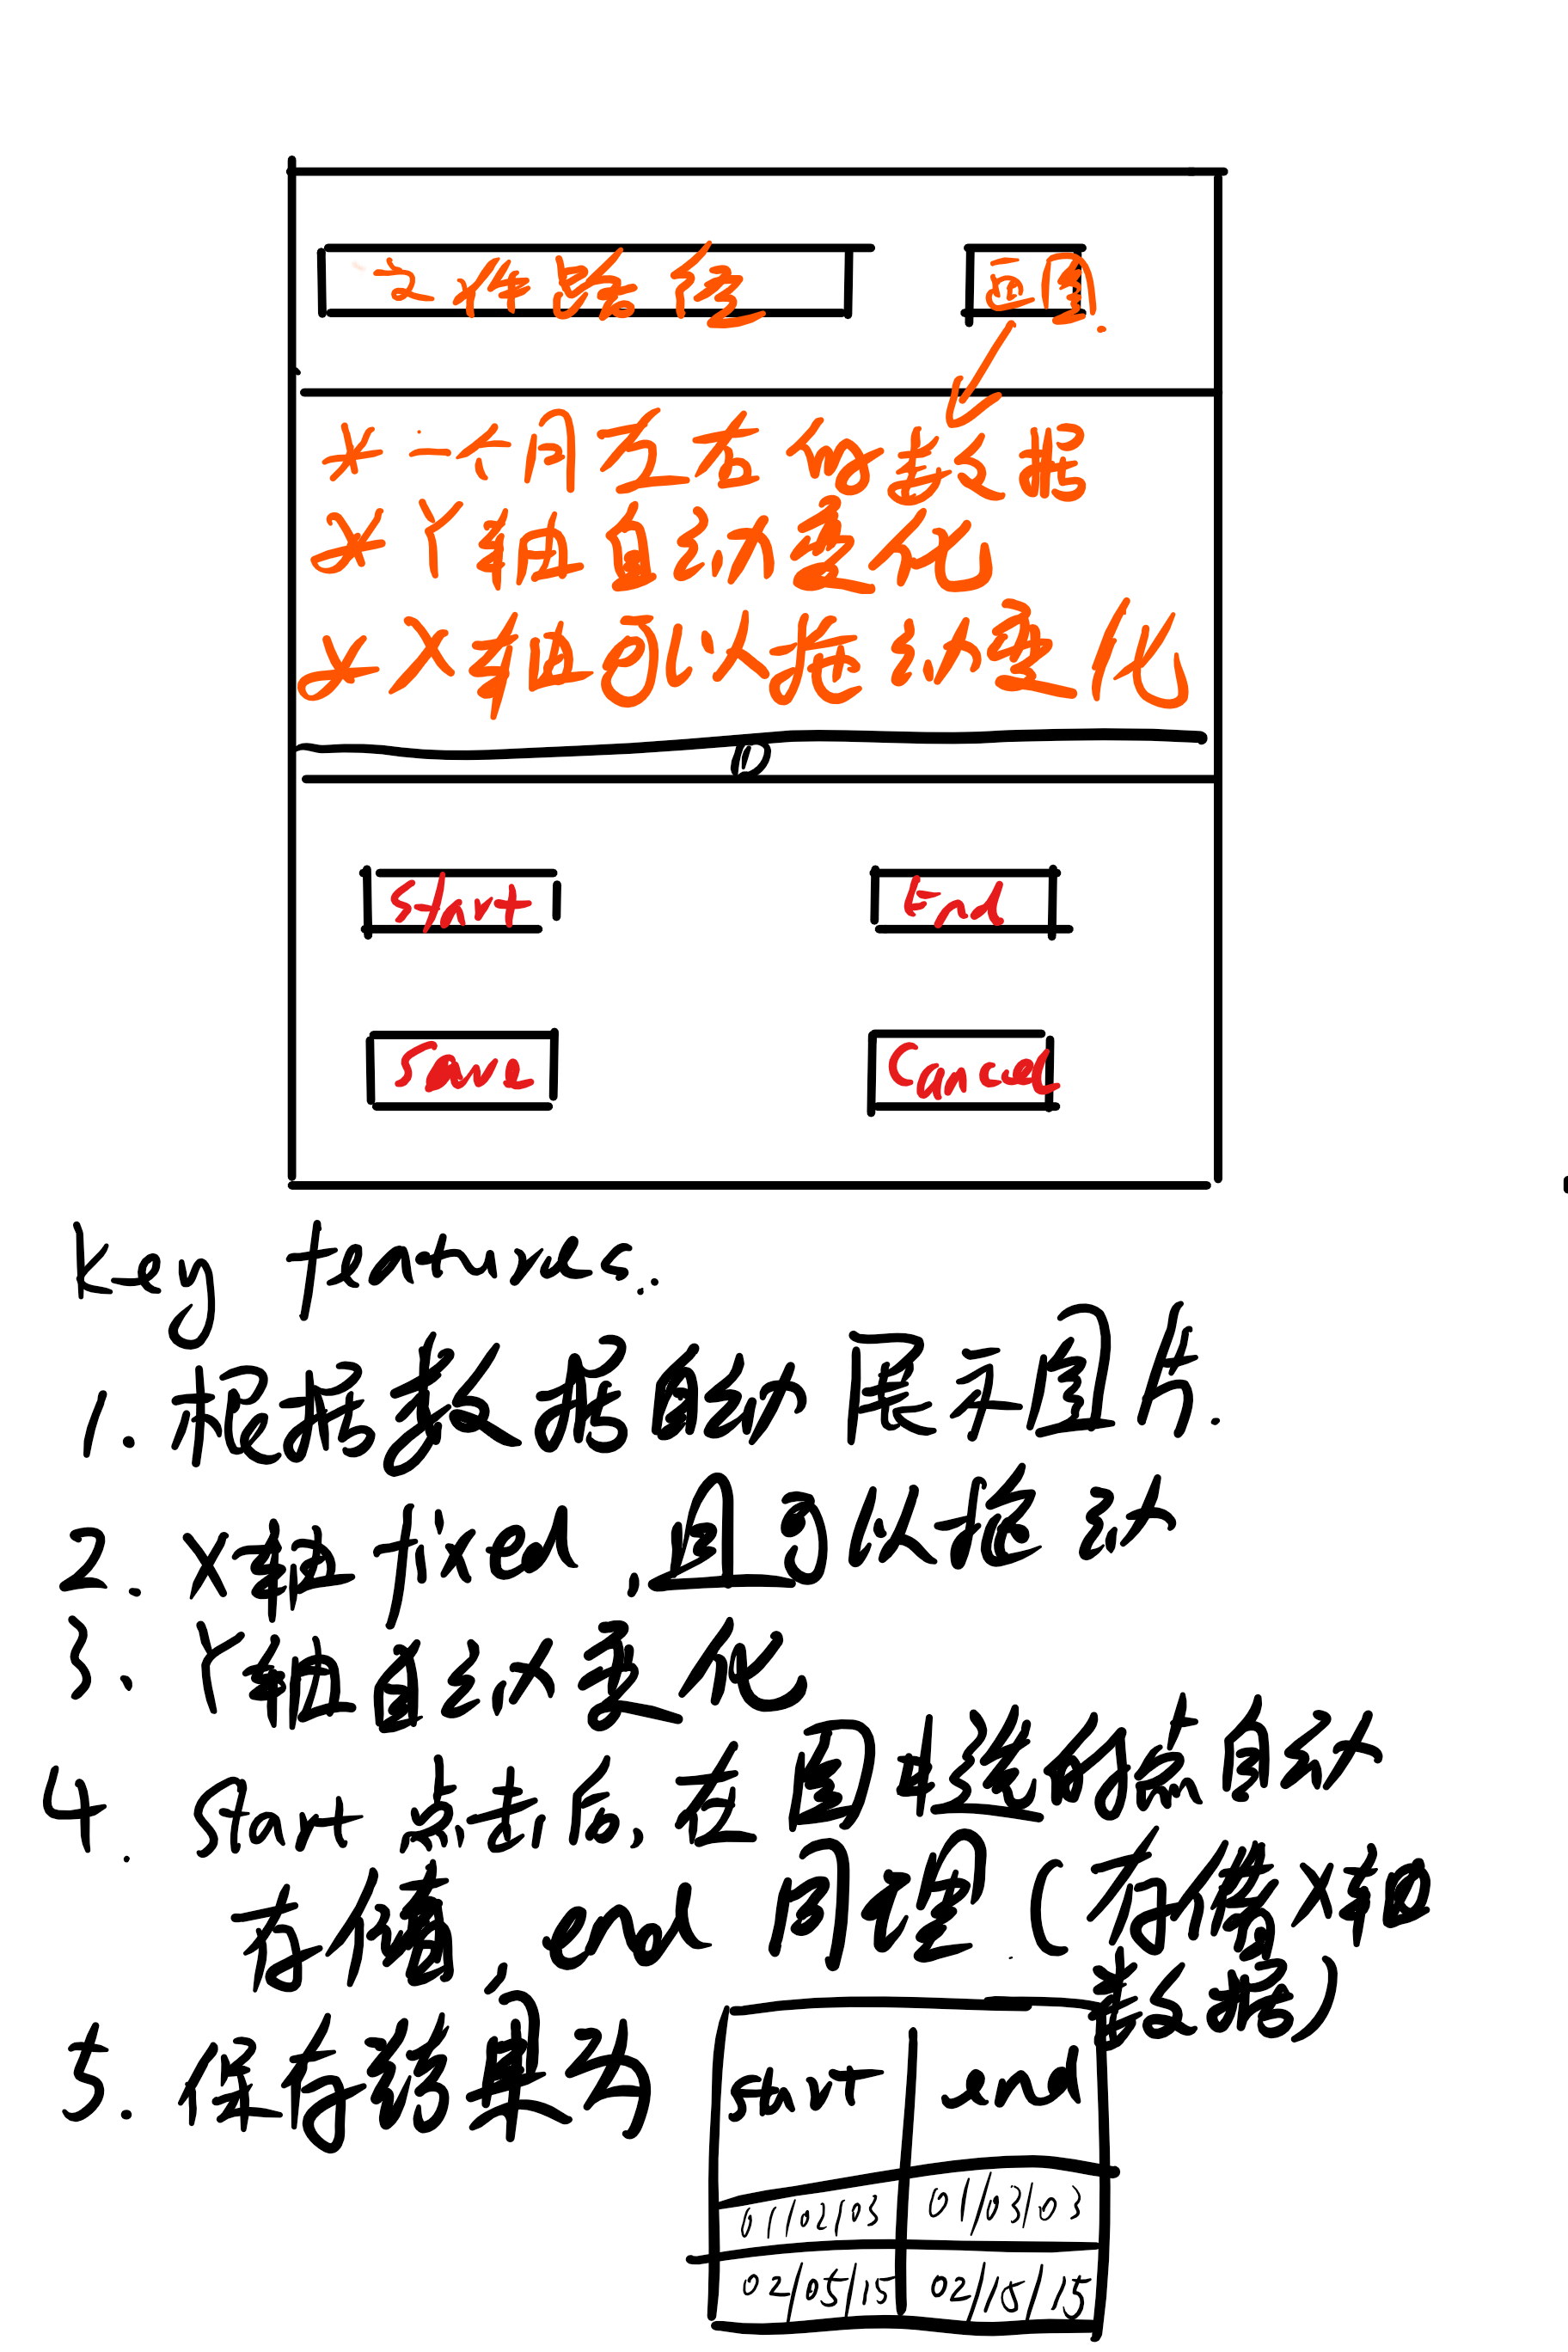 文件路径 画图.
* 一个月左右的数据
* Y轴自动变化
* X轴可以拖动变化
Start End
Save Cancel
key features:
1. 根据数据自动展示图片.
2. X轴 fixed, 且可以拖动
3. Y轴自动变化
4. Start 点击后, 在图中选的点自动
存储 end 同理. (存储X轴
数据)
5. 保存结果为
start end
01/02/03 01/03/03
02/05/15 02/15/15